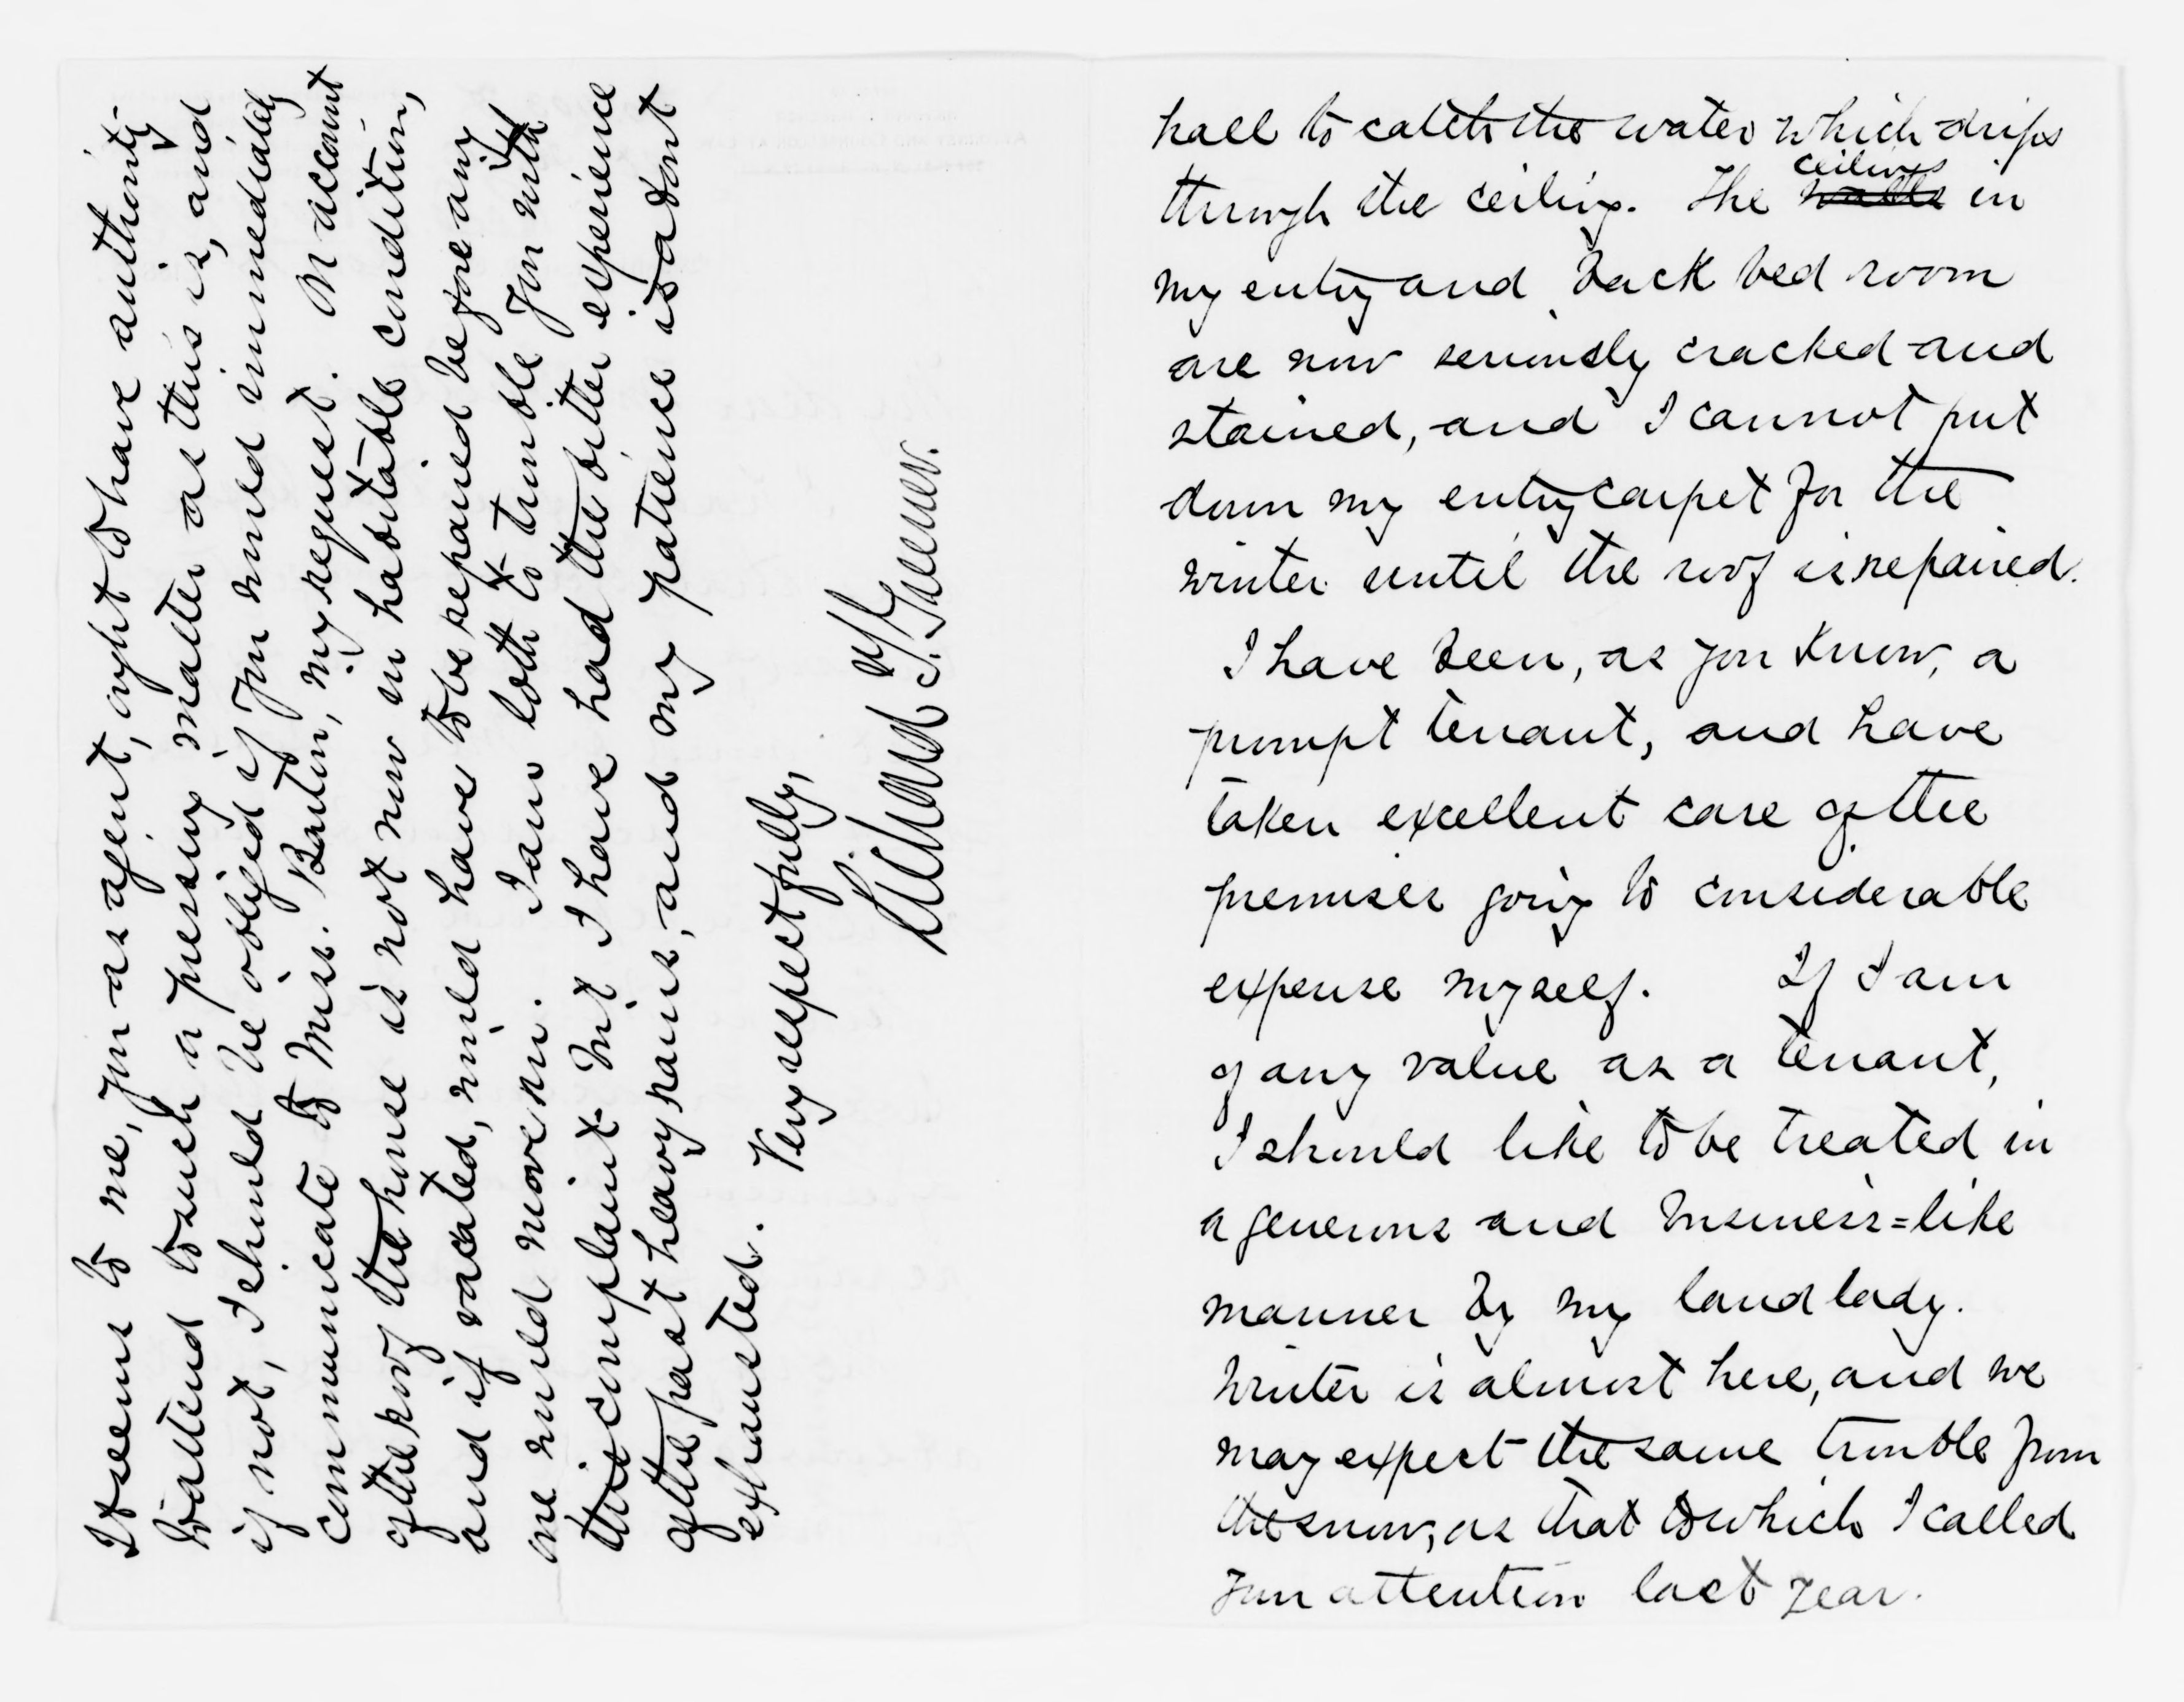 hall to catch the water which drips
through the ceiling. The walls ceilings in
my entry and back bed room
are now seriously cracked and
stained, and I cannot put
down my entry carpet for the
winter until the roof is repaired.
I have been, as you know, a
prompt tenant, and have
taken excellent care of the
premises going to considerable
expense myself. If I am
of any value as a tenant,
I should like to be treated in
a generous and business=like
manner by my landlady.
Winter is almost here, and we
may expect the same trouble from
the snow, as that to which I called
your attention last year.
It seems to me, you as agent, ought to have authority
to attend to such a pressing matter as this is, and
if not, I should be obliged if you would immediately
communicate to Miss. Barton, my request. On account
of the roof the house is not now in habitable condition,
and if vacated, would have to be repaired before any
one would move in. I am loth to trouble you with
this complaint but I have had the bitter experience
of the past heavy rains, and my patience is about
exhausted.
Very respectfully,
Richard T. Greener.